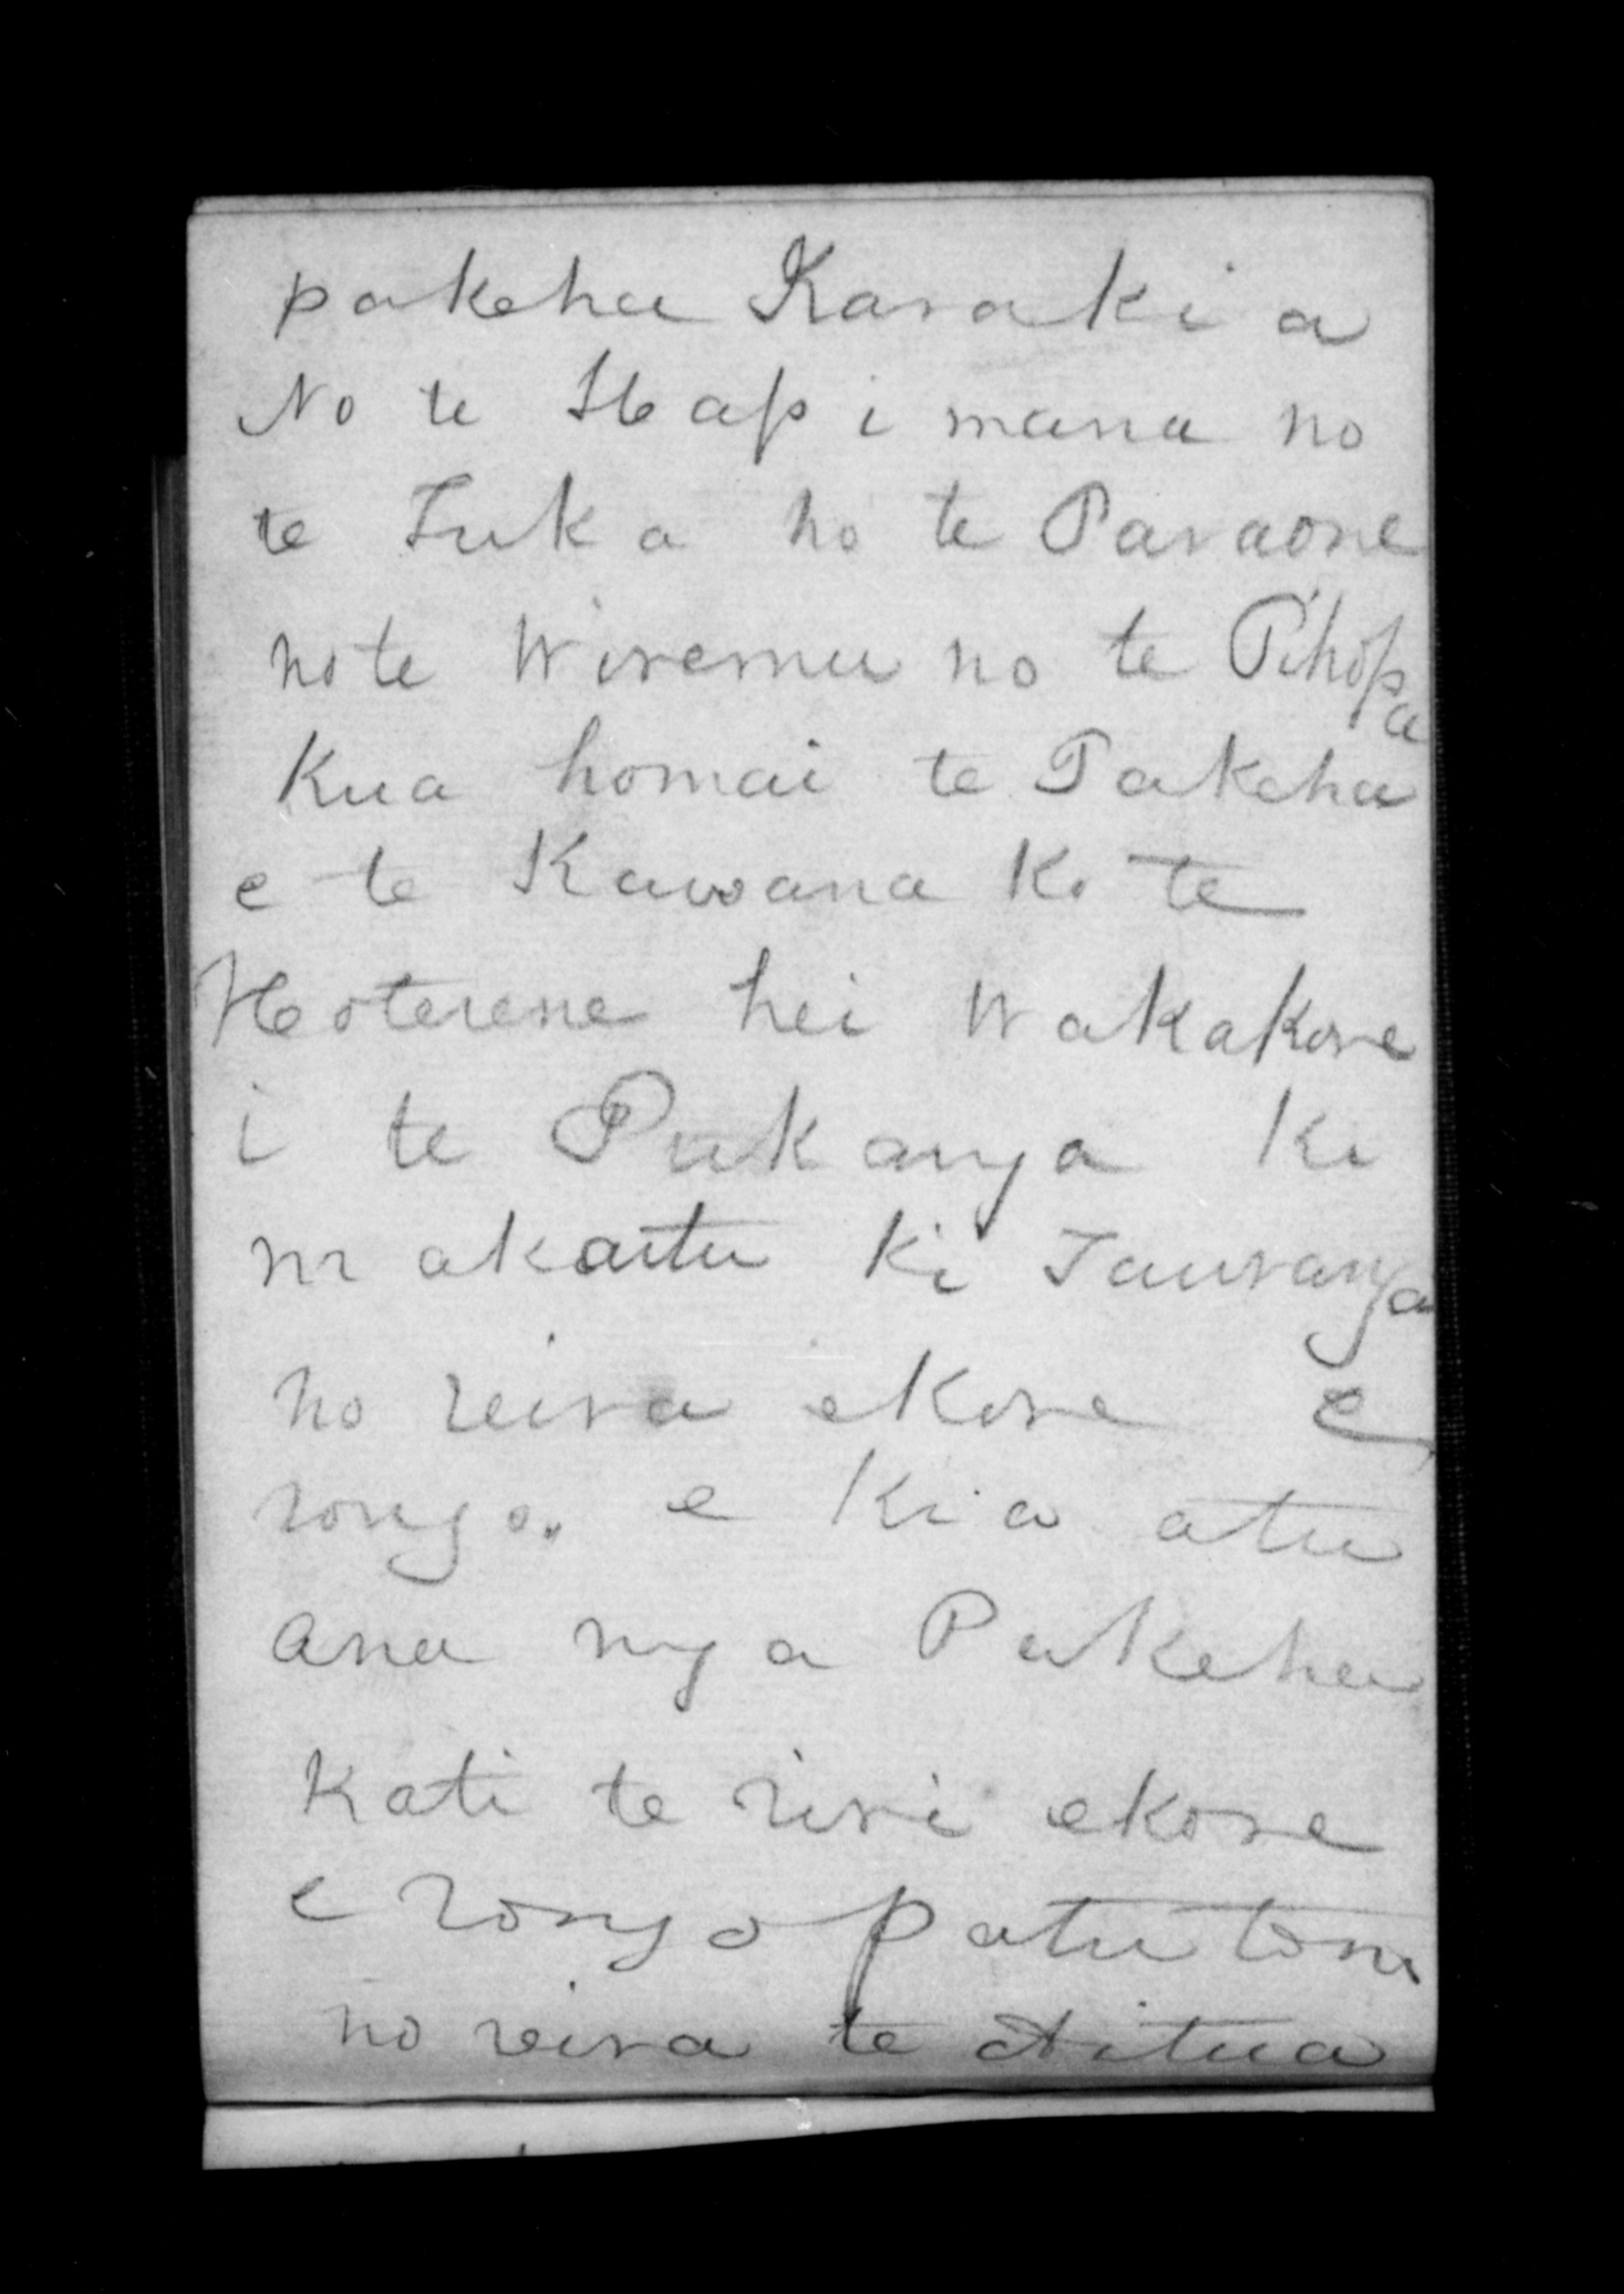 pakeha Karakia
No te Hapimana no
te Tuka no te Paraone
no te Wiremu no te Pihopa
Kua homai te Pakeha
e te Kawana ko te
Hoterene hei Wakakore
i te Pukanga ki
makaitu ki Tauranga
no reira ekore e
rongo. e Kia atu
ana nga Pakeha
Kati te riri ekore
e rongo patu tonu
no reira te Aitua